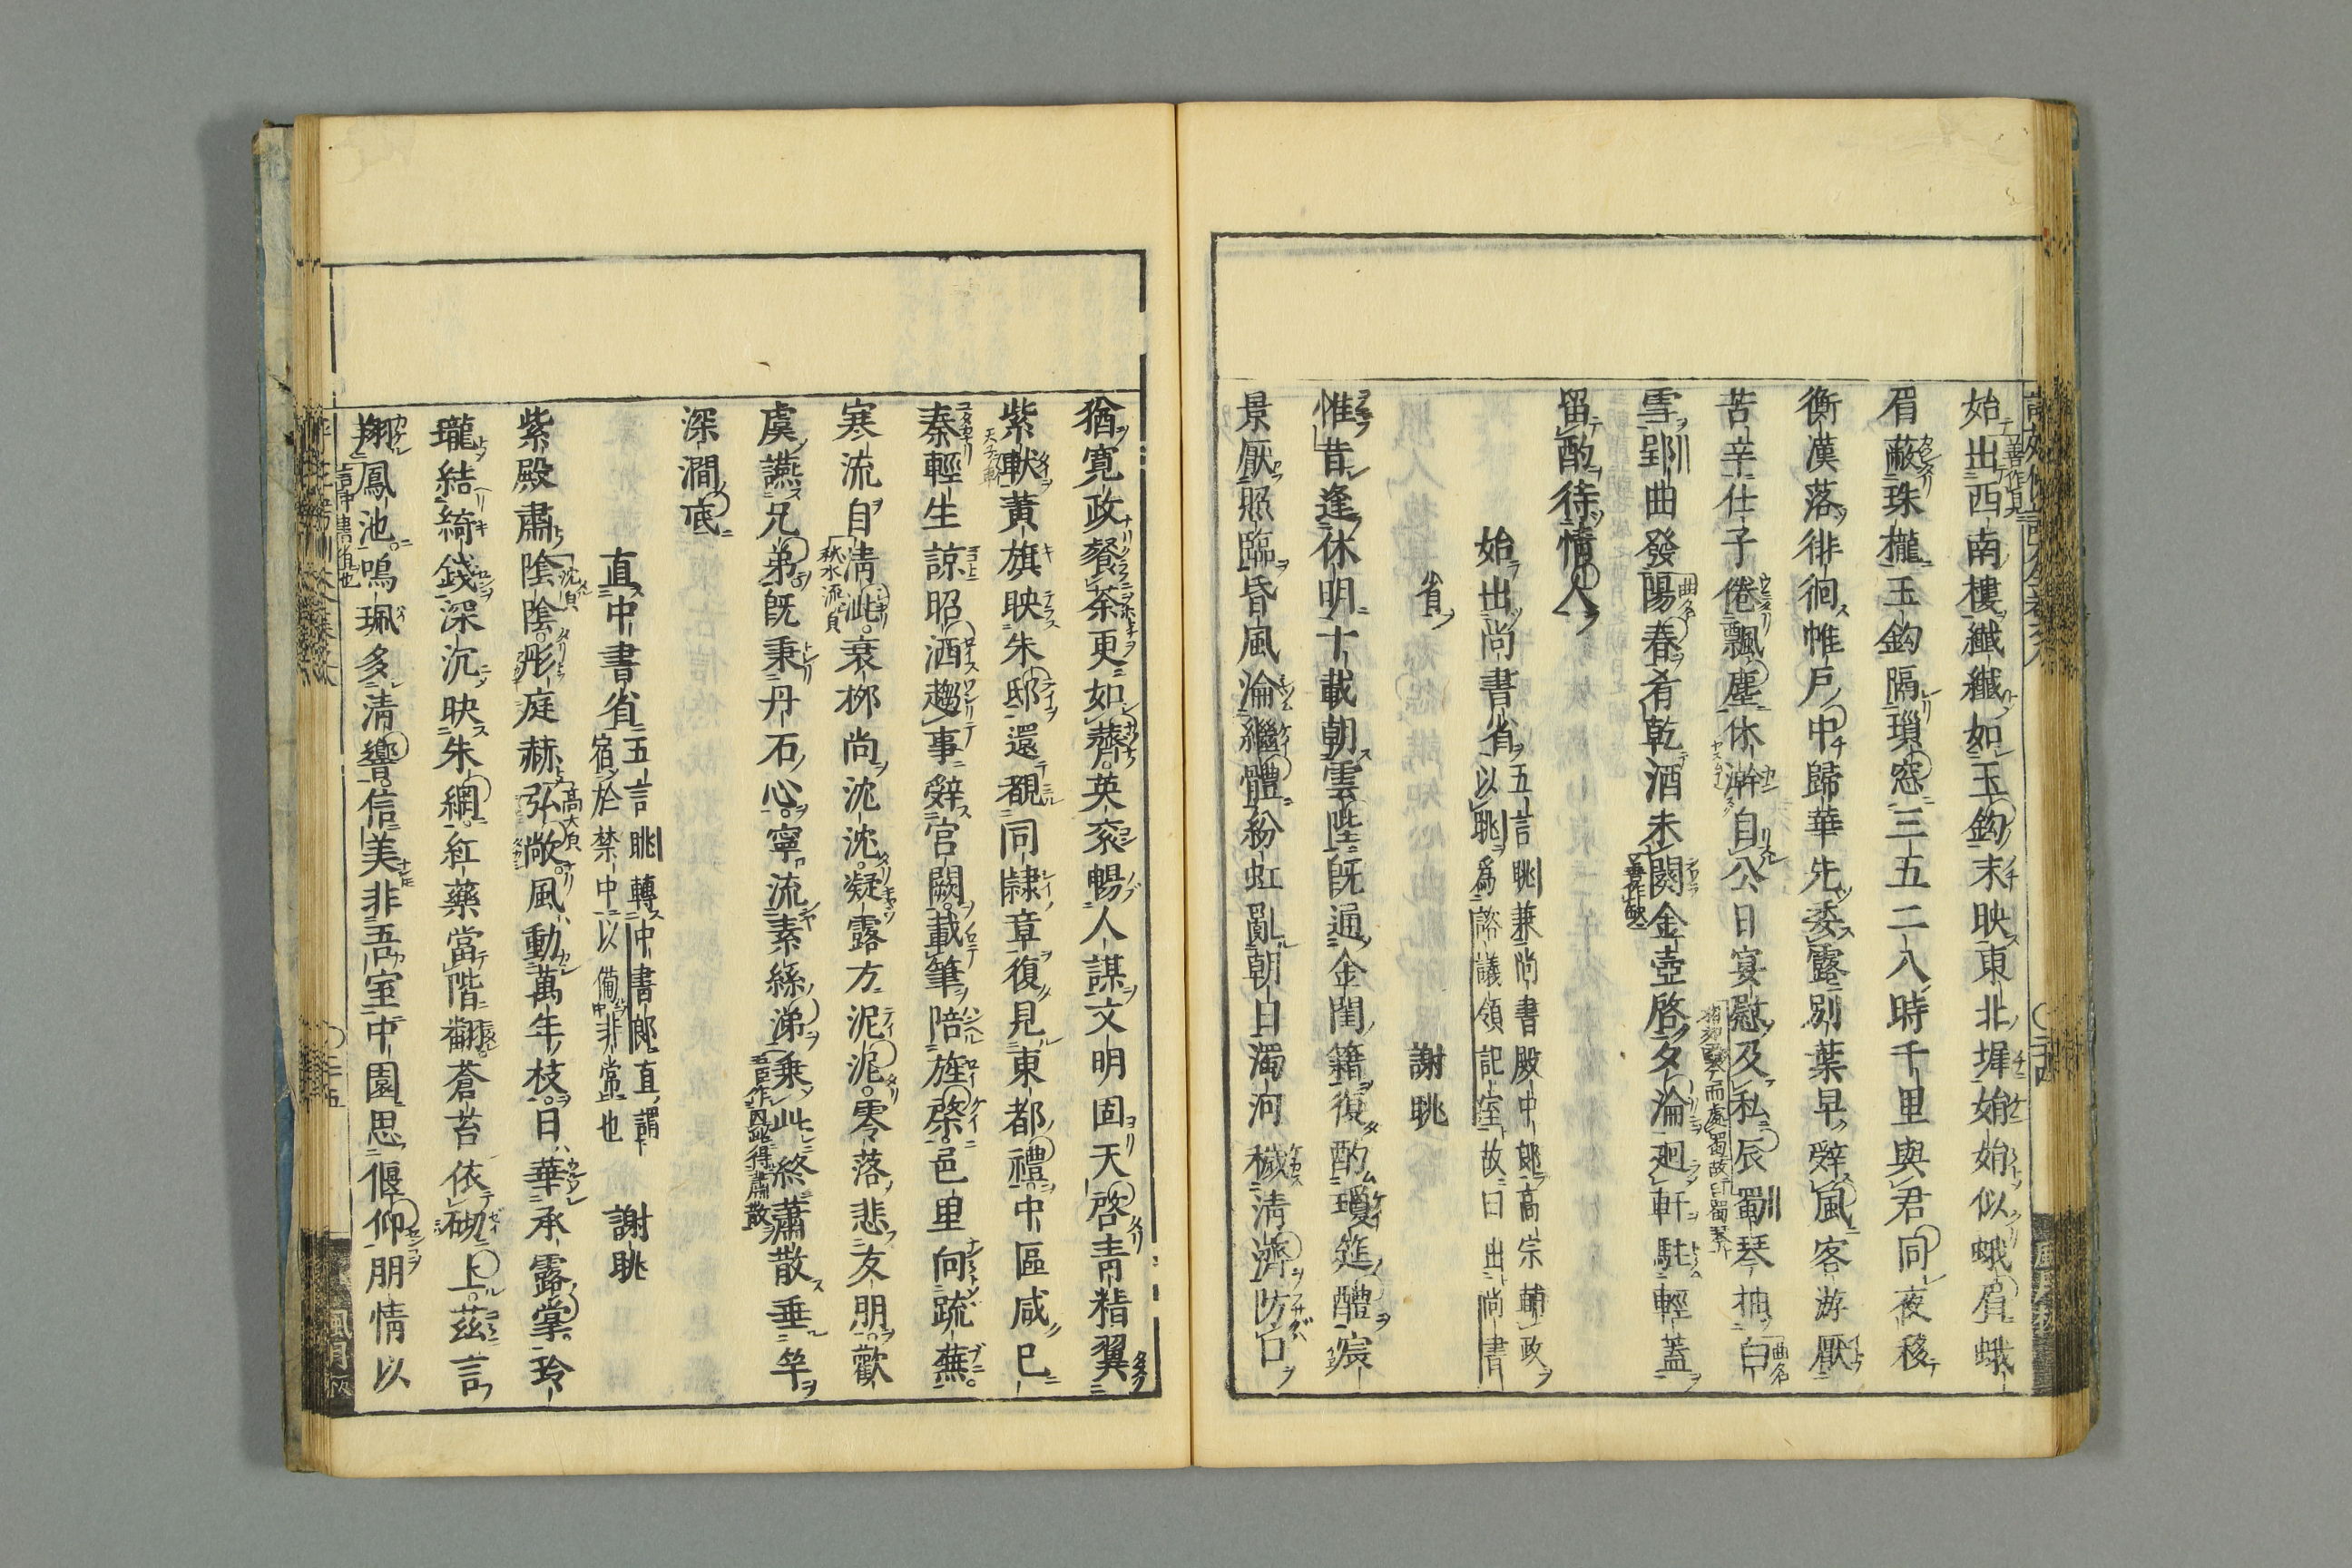 始出西南樓纖纖如玉鈎末映東北墀娟娟似蛾眉蛾
眉蔽珠櫳玉鈎隔瑣窓三五二八時千里與君同夜移
衡漢落徘徊帷戶中歸華先委露別葉早辤風客游厭
苦辛仕子倦飄塵休澣自公日宴慰及私辰蜀琴抽白
雪郢曲發陽春肴乾酒未闋金壺啓夕淪廻軒駐輕蓋
留酌待情人
始出尚書省
五言眺兼尚書殿中郎高宗輔政
以眺爲諮議領記室故曰出尚書
省
謝眺
惟昔逢休明十載朝雲陛既通金閨籍復酌瓊筵醴宸
景厭照臨昏風淪繼體紛虹亂朝日濁河穢淸濟防口
猶寛政餐荼更如薺英袞暢人謀文明固天啓青精翼
紫軑黃旗映朱邸還覩同隷章復見東都禮中區咸已
泰輕生諒昭洒趨事辤宮闕載筆陪旌棨邑里向疏蕪
寒流自淸泚衰柳尚沈沈凝露方泥泥零落悲友朋歡
虞讌兄弟既秉丹石心寧流素絲涕乗此終蕭散垂竿
深澗底
直中書省
五言眺轉中書郎直謂
宿於禁中以備非常也
謝眺
紫殿肅陰陰彤庭赫弘敞風動萬年枝日華承露掌玲
瓏結綺錢深沉映朱網紅藥當階翻蒼苔依砌上茲言
翔鳳池鳴珮多清響信美非吾室中園思偃仰朋情以